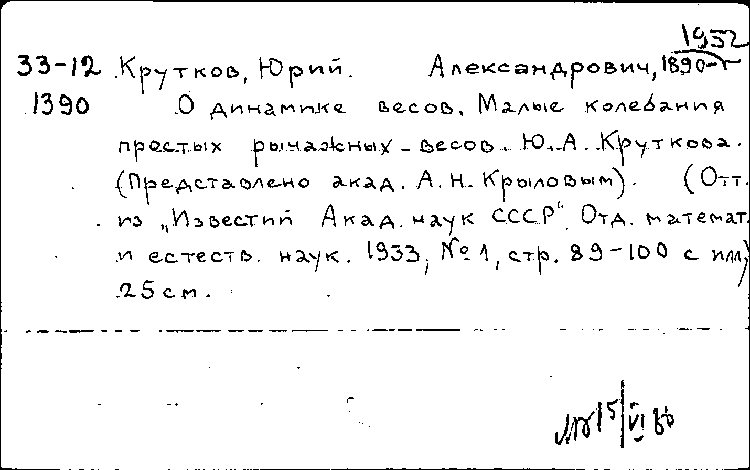 1952
33-12 Крутков, Юрий. Александрович, 1890-
1390 О динамике весов. Малые колебания
простых рычажных весов. Ю. А. Круткова.
(Представлено акад. А. Н. Крыловым). (Отт.
из „Известий Акад. наук СССР“. Отд. математ.
и естеств. наук. 1933, № 1, стр. 89-100 с илл)
25 см.
15/VI